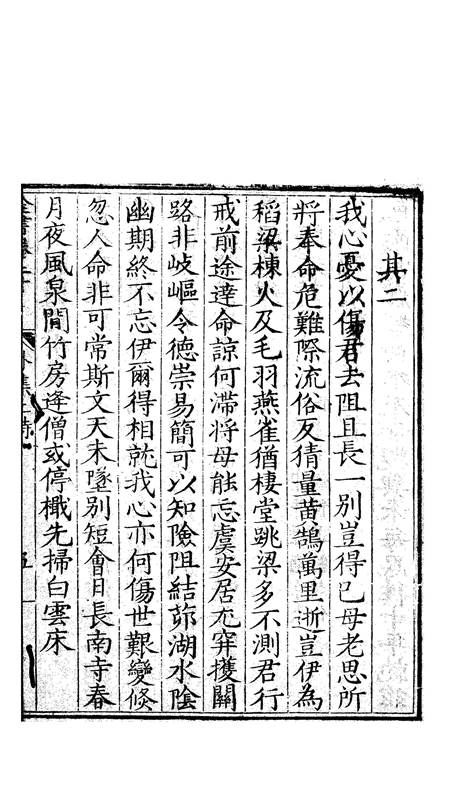 其二
我心憂以傷君去阻且長一別豈得已母老思所
將奉命危難際流俗反猜量黃鵠萬里逝豈伊為
稻粱棟火及毛羽燕雀猶棲堂跳梁多不測君行
戒前途達命諒何滯將母能忘虞安居尤穽擭關
路非岐嶇令德崇易簡可以知險阻結茆湖水陰
幽期終不忘伊爾得相就我心亦何傷世艱變倏
忽人命非可常斯文天未墜別短會日長南寺春
月夜風泉閒竹房逢僧或停檝先掃白雲床
五